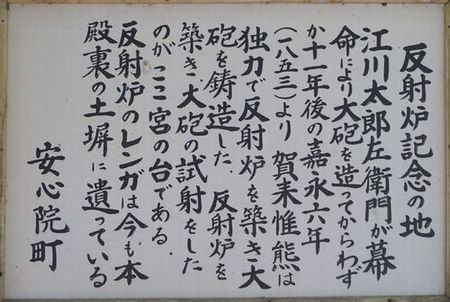 反射炉記念の地
江川太郎左衛門が幕
命により大砲を造ってからわず
か十一年後の嘉永六年
(一八五三)より賀来惟熊は
独力で反射炉を築き大
砲を鋳造した。反射炉を
築き、大砲の試射をした
のがここ宮の台である。
反射炉のレンガは今も本
殿裏の土塀に遺っている
安心院町